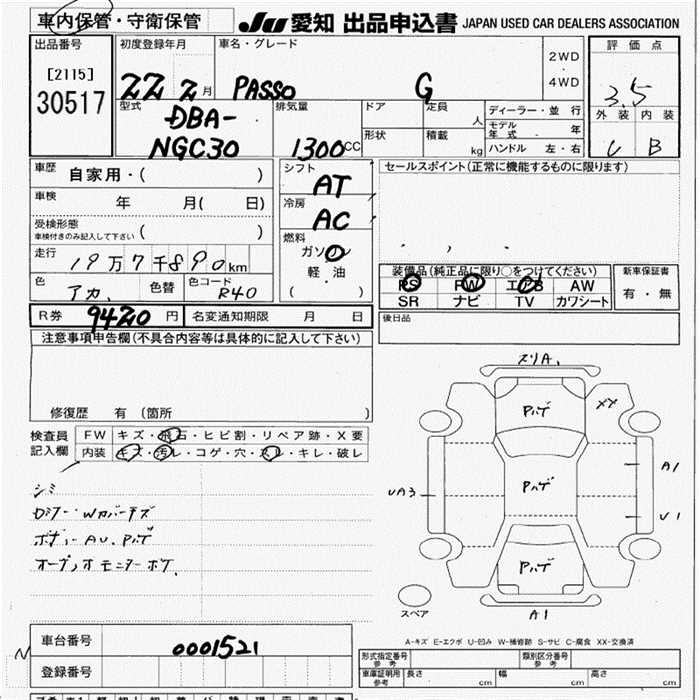 車内保管・守衛保管
JU 愛知 出品申込書 JAPAN USED CAR DEALERS ASSOCIATION
出品番号
[2115]
30517
初度登録年月
22 2月
車名・グレード
PASSO G
2WD
・
4WD
評価点
3.5
外装 内装
B
型式
DBA-
NGC30
排気量
1300CC
ドア
定員 人
形状
積載 kg
ディーラー・並 行
モデル年式 年
ハンドル 左・右
車歴 自家用・( )
車検 年 月( 日)
受検形態
車検付きのみ記入して下さい ( )
走行 19万7千890km
色 アカ.
色替
色コード R40
シフト
AT
冷房
AC
燃料
ガソリン
・
軽油
( )
セールスポイント(正常に機能するものに限ります)
装備品(純正品に限り○をつけてください)
PS PW エアB AW
SR ナビ TV カワシート
新車保証書
有・無
R券 9420円
名変通知期限 月 日
後日品
注意事項申告欄(不具合内容等は具体的に記入して下さい)
修復歴 有 (箇所 )
検査員
記入欄
FW キズ・飛石・ヒビ割・リペア跡・X要
内装 キズ・汚レ・コゲ・穴・スレ・キレ・破レ
シミ
ボディー AU. Pハゲ
オーディオ モニターボケ.
スリA.
Pハゲ
XX
UA3
Pハゲ
A1
U1
Pハゲ
A1
スペア
A-キズ E-エクボ U-凹み W-補修跡 S-サビ C-腐食 XX-交換済
車台番号 0001521
登録番号
型式指定番号
参考
類別区分番号
参考
車庫証明用
参考
長さ cm 幅 cm 高さ cm